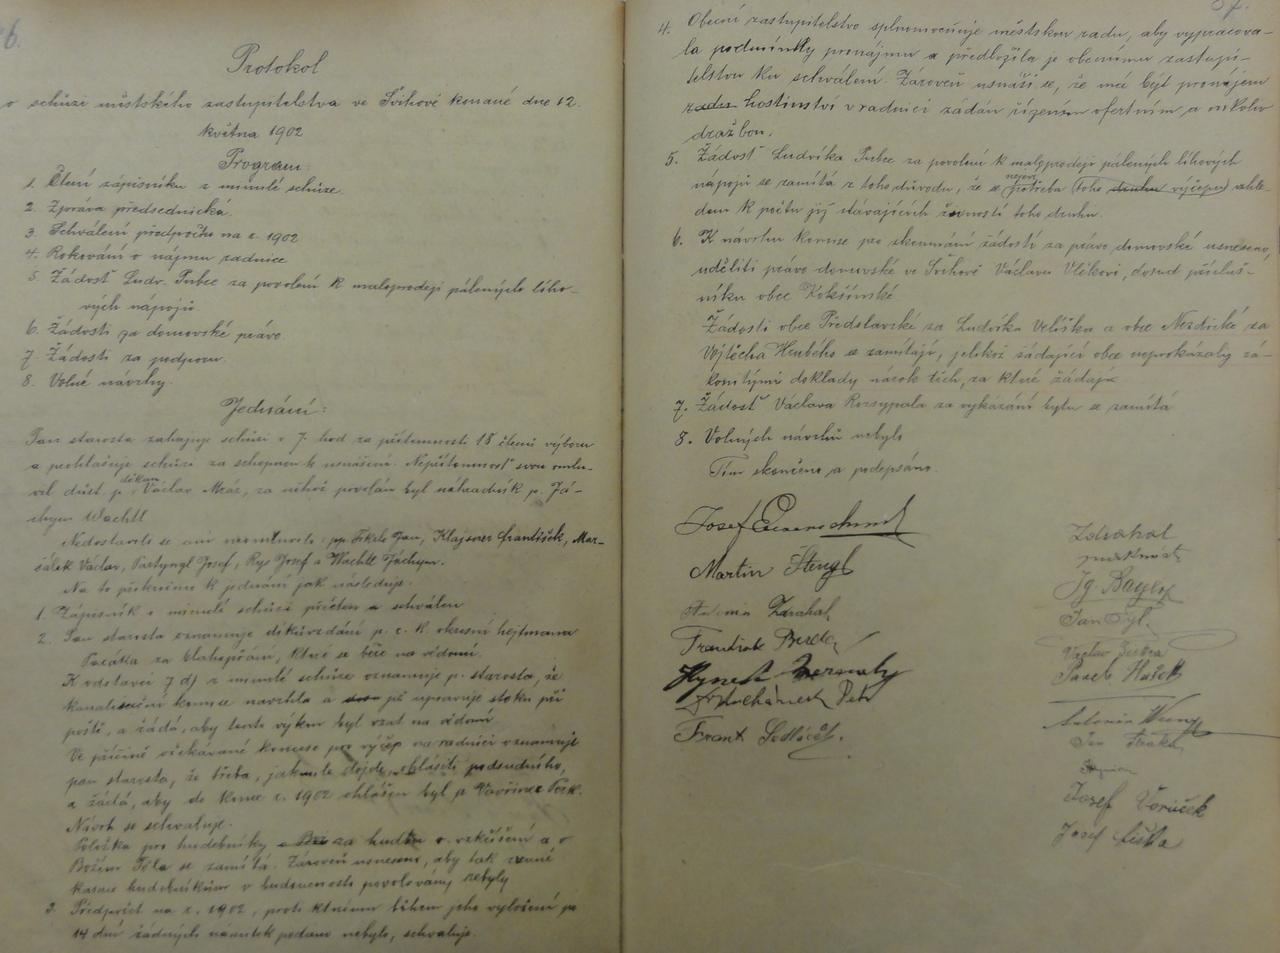 6.
Protokol
o schůzi městského zastupitelstva ve Švihově konané dne 12.
května 1902
Program
1. Čtení zápisníku z minulé schůze
2. Zpráva předsednická.
3. Schválení předpočtu na r. 1902
4. Rokování o nájmu radnice
5. Žádost Ludv. Pubce za povolení k maloprodeji pálených lího-
vých nápojů.
6. Žádosti za domovské právo
7. Žádosti za podporu.
8. Volné návrhy.
Jednání:
Pan starosta zahajuje schůzi v 7. hod za přítomnosti 18 členů výboru
a prohlašuje schůzi za schopnou k usnášení. Nepřítomnost svou omlu-
vil důst. p. děkan Václav Mráz, za něhož povolán byl náhradník p. Já-
chym Wachtl
Nedostavili se ani neomluvili: pp. Jan, Klajsner František, Mar-
šálek Václav, Josef, Rys Josef a Wachtl Jáchym.
Na to přikročeno k jednání jak následuje.
1. Zápisník o minulé schůzi přečten a schválen
2. Pan starosta oznamuje díkůvzdání p. c. k. okresní hejtmana
za blahopřání, které se béře na vědomí.
K odstavci 7 d) z minulé schůze oznamuje p. starosta, že
kanalisační komise navrhla a upravuje stoku při
poště, a žádá, aby tento výkon byl vzat na vědomí
Ve příčině očekávané koncese pro výčep na radnici oznamuje
pan starosta, že třeba, jakmile dojde, ohlásiti podsudního,
a žádá, aby do konce r. 1902 ohlášen byl p. Vavřinec
Návrh se schvaluje.
Položka pro hudebníky za hudbu o vzkříšení a o
Božím Těle se zamítá. Zároveň usneseno, aby tak zvané
hudebníkům v budoucnosti povolovány nebyly
3. Předpočet na r. 1902, proti kterému během jeho vyložení po
14 dní žádných námitek podáno nebylo, schvaluje.
37.
4. Obecní zastupitelstvo splnomocňuje městskou radu, aby vypracova-
la podmínky pronájmu a předložila je obecnímu zastupi-
telstvu ku schválení. Zároveň usnáší se, že má být pronájem
hostinství v radnici zadán řízením ofertním a nikoliv
dražbou.
5. Žádost Ludvíka Pubce za povolení k maloprodeji pálených líhových
nápojů se zamítá z toho důvodu, že se nejeví potřeba toho druhu výčepu vzhle-
dem k počtu již stávajících živností toho druhu.
6. K návrhu komise pro zkoumání žádostí za právo domovské usneseno,
uděliti právo domovské ve Švihově Václavu Vlčkovi, dosud přísluš-
níku obce Kokšínské
Žádosti obce Předslavské za Ludvíka Velíška a obce Nezdické za
Vojtěcha Hrubého se zamítají, jelikož žádající obce neprokázaly zá-
konitými doklady nárok těch, za které žádají
7. Žádost Václava Rozsypala za vykázání bytu se zamítá
8. Volných návrhů nebylo
Tím skončeno a podepsáno.
Josef
Martin Stengl
Antonín Zdráhal
František
Hynek
Petr
Frant. Sedláček.
Zdráhal
Ig. Bayer
Jan Tyl.
Václav
Hašek
Antonín
Jan
Josef Voráček
Josef Liška